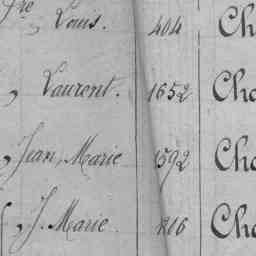 fre, Louis. 404 Ch
, Laurent. 1652 Cha
, Jean, Marie 1592 Cha
, J. Marie. 216 Cha